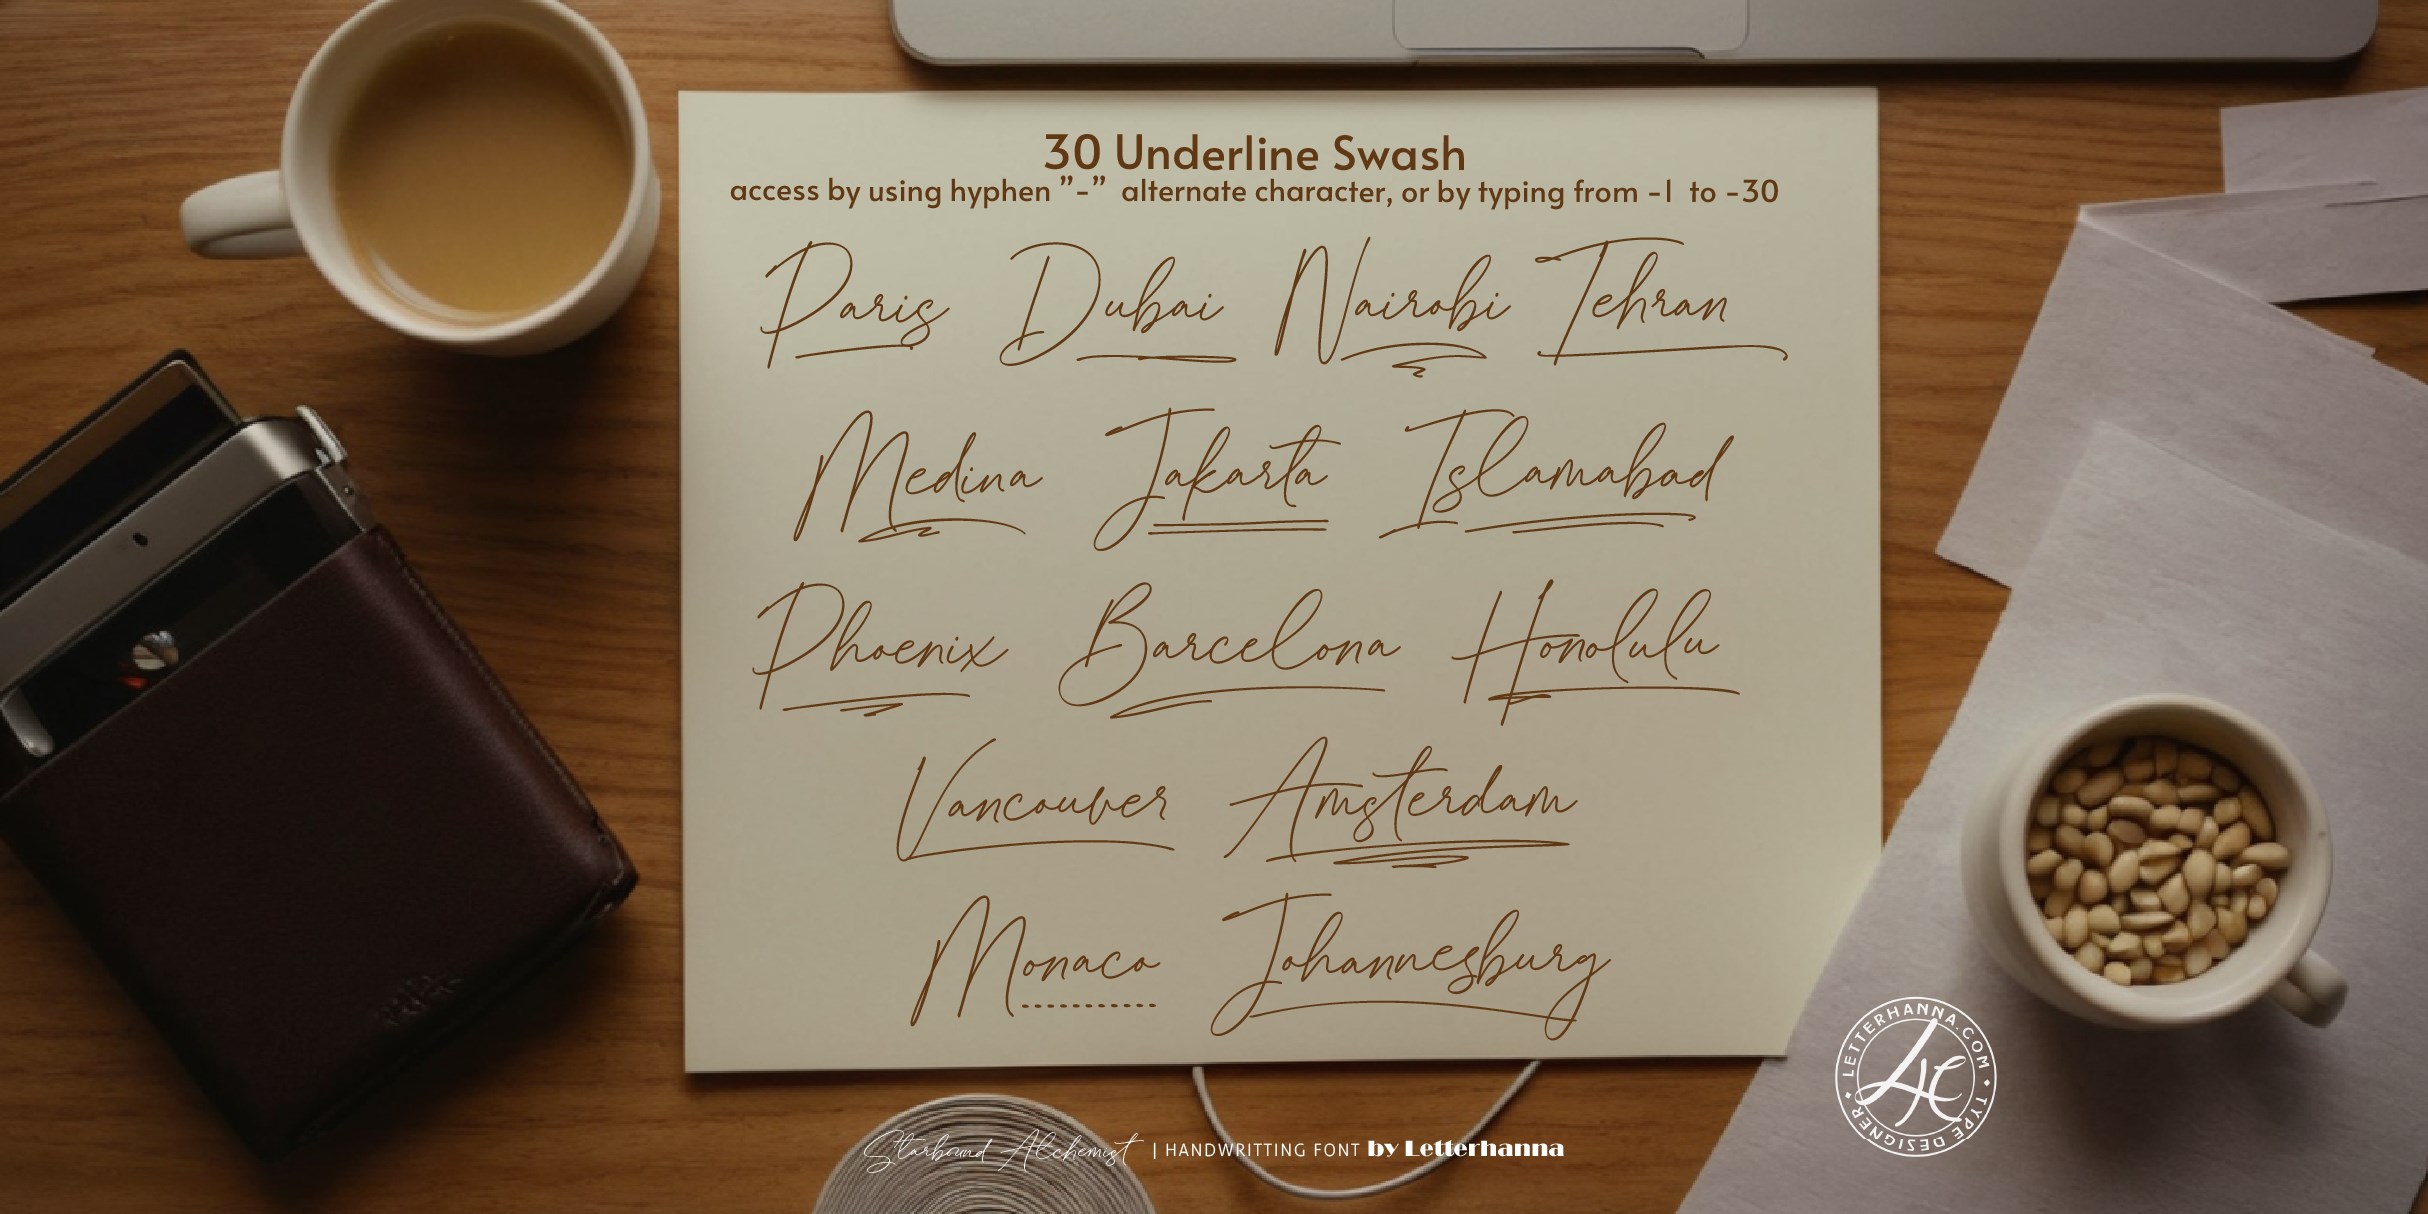 30 Underline Swash
access by using hyphen ”-” alternate character, or by typing from -1 to -30
Paris Dubai Nairobi Tehran
Medina Jakarta Islamabad
Phoenix Barcelona Honolulu
Vancouver Amsterdam
Monaco Johannesburg
LETTERHANNA.COM • TYPE DESIGNER •
LH
Starbound Alchemist | HANDWRITTING FONT by Letterhanna